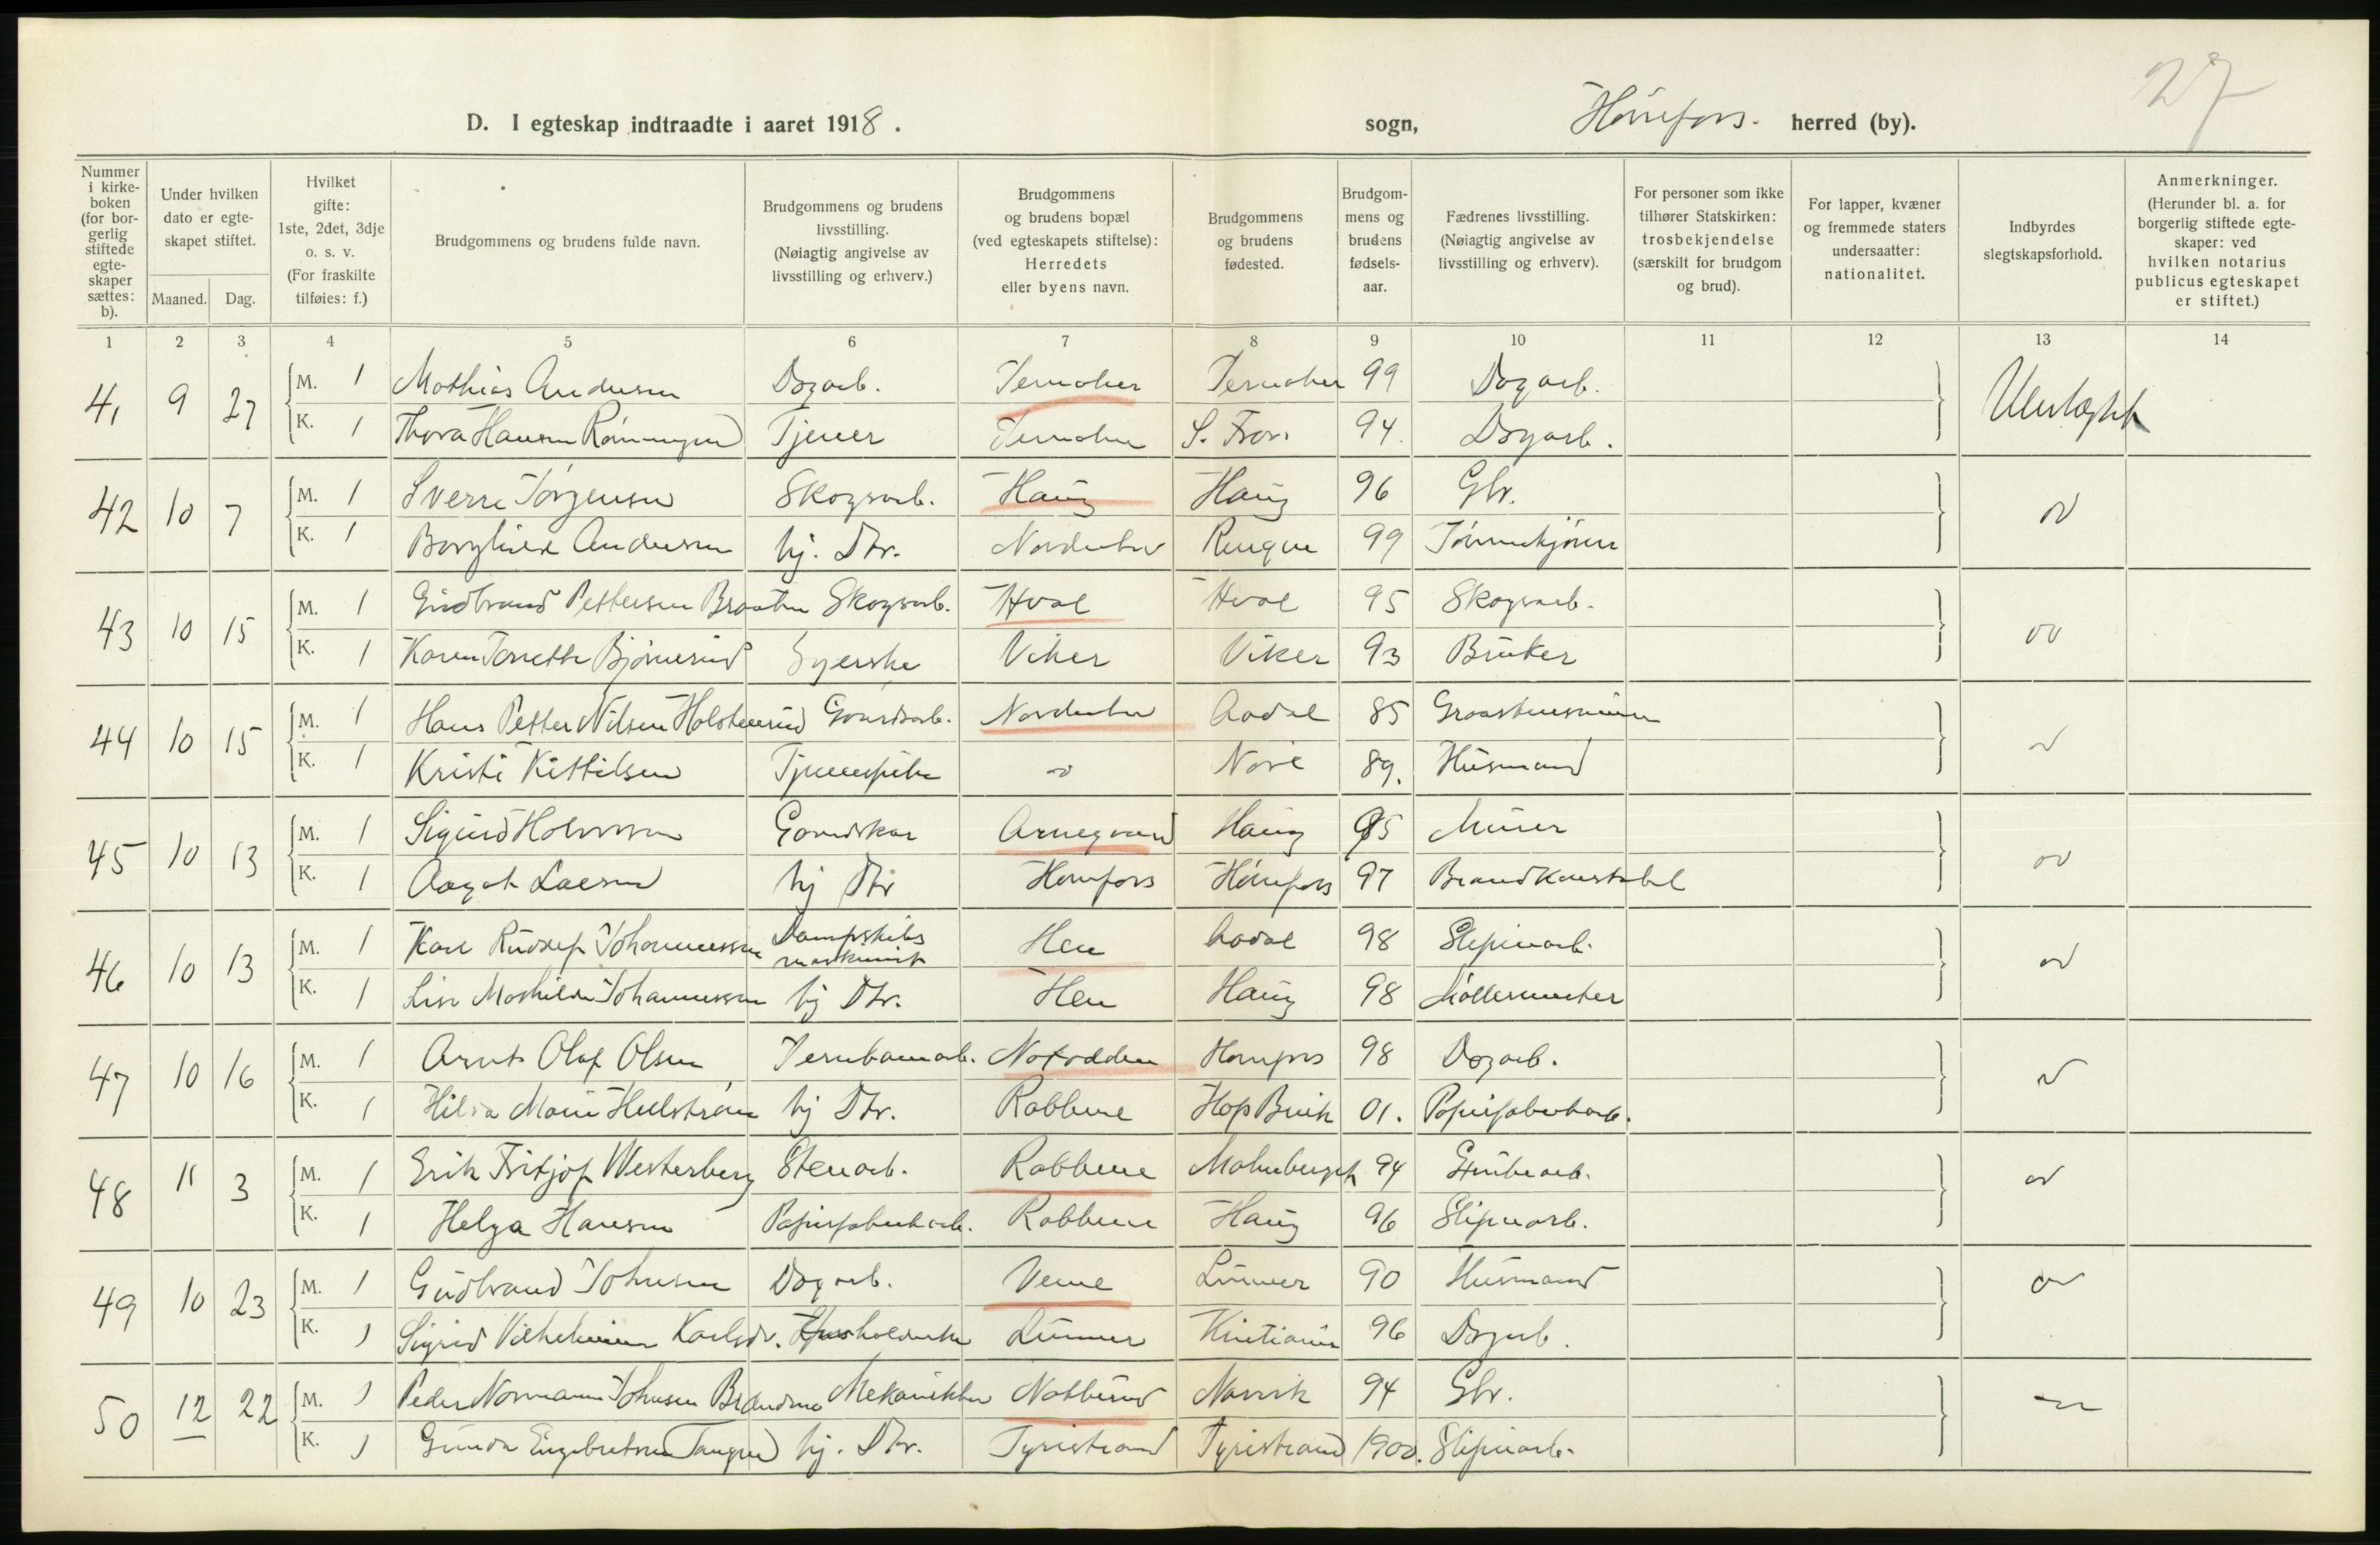 27
D. I egteskap indtraadte i aaret 1918. sogn, Hønefoss. herred (by).
Nummer i kirke-boken (for bor-gerlig stiftede egte-skaper sættes: b).
Under hvilken dato er egte-skapet stiftet.
Maaned. Dag.
Hvilket gifte: 1ste, 2det, 3dje o. s. v. (For fraskilte tilføies: f.)
Brudgommens og brudens fulde navn.
Brudgommens og brudens livsstilling. (Nøiagtig angivelse av livsstilling og erhverv.)
Brudgommens og brudens bopæl (ved egteskapets stiftelse): Herredets eller byens navn.
Brudgommens og brudens fødested.
Brudgom-mens og brudens fødsels-aar.
Fædrenes livsstilling. (Nøiagtig angivelse av livsstilling og erhverv).
For personer som ikke tilhører Statskirken: trosbekjendelse (særskilt for brudgom og brud).
For lapper, kvæner og fremmede staters undersaatter: nationalitet.
Indbyrdes slegtskapsforhold.
Anmerkninger. (Herunder bl. a. for borgerlig stiftede egte-skaper: ved hvilken notarius publicus egteskapet er stiftet.)
1 2 3 4 5 6 7 8 9 10 11 12 13 14
41 9 27 M. 1 Mathias Andersen Dagarb. Jevnaker Jevnaker 99 Dagarb. Ubeslægtet
K. 1 Thora Hansen Rønningen Tjener Jevnaker S. Fron 94. Dagarb.
42 10 7 M. 1 Sverre Jørgensen Skogsarb. Haug Haug 96 Gbr.
K. 1 Borghild Andersen hj. Dtr. Norderhov 99
43 10 15 M. 1 Gudbrand Pettersen Braaten Skogsarb. Hval Hval 95 Skogsarb.
K. 1 Karen Bjørnerud Syerske Viker Viker 93 Bruker
44 10 15 M. 1 Hans Petter Nilsen Gaardsarb. Norderhov Aadal 85
K. 1 Kristi Kittilsen Tjenestepike Nore 89. Husmand
45 10 13 M. 1 Sigurd Gaardskar Arnegaard Haug 95 Murer
K. 1 Aagot Larsen hj Dtr Hønefoss Hønefoss 97 Brandkonstabel
46 10 13 M. 1 Karl Rudolf Johannessen Dampskibs maskinist Hen Aadal 98 Sliperiarb.
K. 1 Lise Mathilde Johannessen hj Dtr. Hen Haug 98 Møllermester
47 10 16 M. 1 Arnt Olaf Olsen Jernbanearb. Notodden Hønefoss 98 Dagarb.
K. 1 Hilda Marie Hellstrøm hj Dtr. Rabbene Hop Bruk 01. Papirfabrikarb.
48 11 3 M. 1 Erik Fritjof Westerberg Stenarb. Rabbene Malmberget 94 Grubearb.
K. 1 Helga Hansen Papirfabrikarb. Rabbene Haug 96 Sliperiarb.
49 10 23 M. 1 Gudbrand Johnsen Dagarb. Veme Lunner 90 Husmand
K. 1 Sigrid Vilhelmine Karlsdr. Husholderske Lunner Kristiania 96 Dagarb.
50 12 22 M. 1 Peder Normann Johnsen Mekaniker Nakkerud Narvik 94 Gbr.
K. 1 Gunda Engebretsen Tangen hj. Dtr. Tyristrand Tyristrand 1900. Sliperiarb.